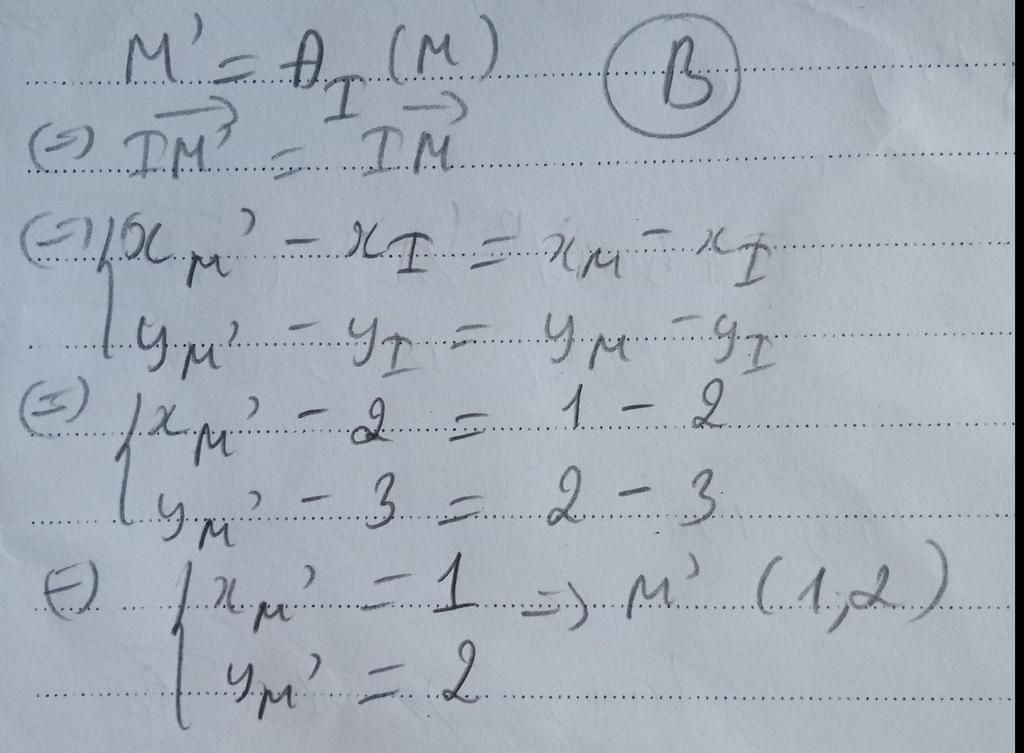 M' = A_I (M) B
(=) IM' = IM
(=) { x_M' - x_I = x_M - x_I
y_M' - y_I = y_M - y_I
(=) { x_M' - 2 = 1 - 2
y_M' - 3 = 2 - 3
(=) { x_M' = 1 => M' (1,2)
y_M' = 2